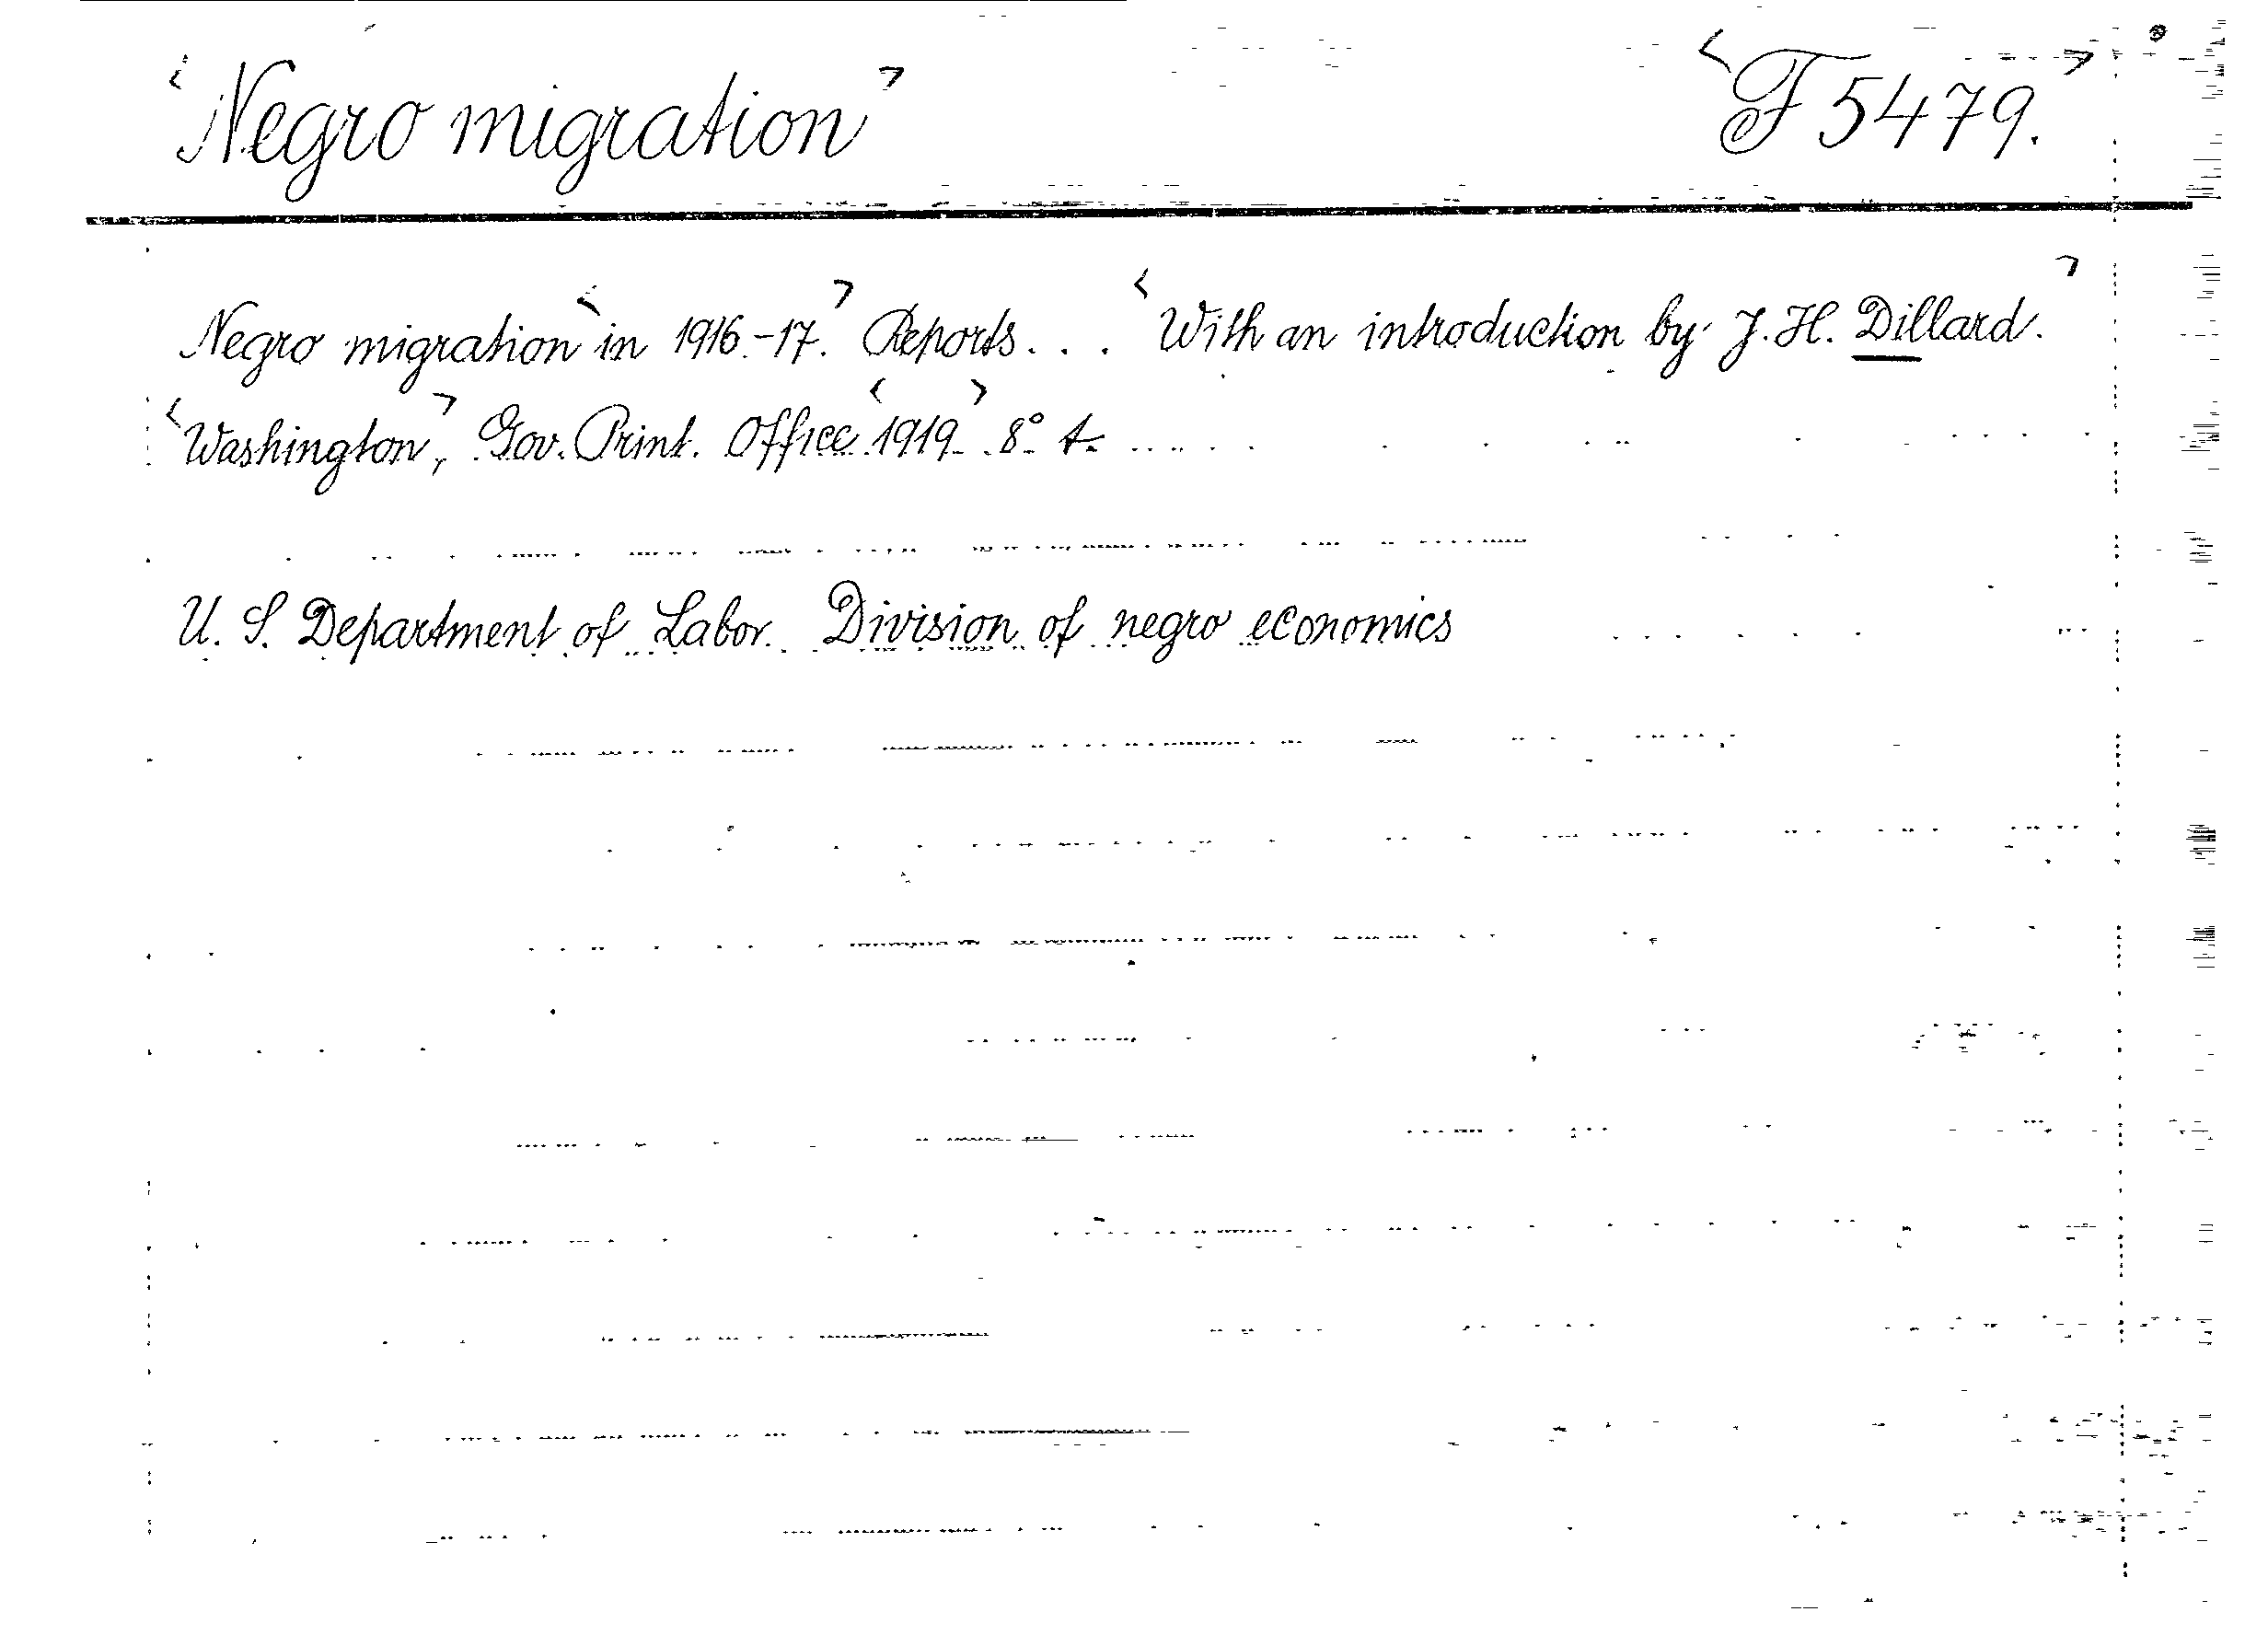 Negro migration F 5479.
Negro migration in 1916-17. Reports... With an introduction by J. H. Dillard.
Washington, Gov. Print. Office 1919. 8°
U. S. Department of Labor. Division of negro economics